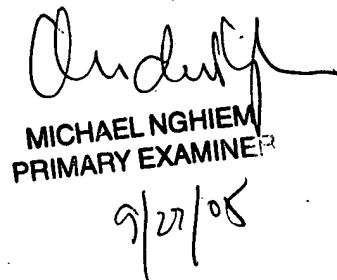 MICHAEL NGHIEM
PRIMARY EXAMINER
9/27/05